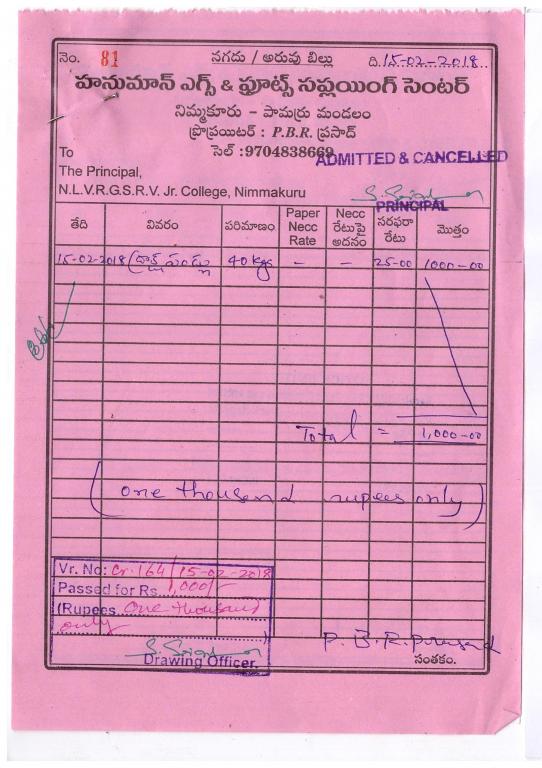 నెం. 81 నగదు / అరువు బిల్లు ది.15-02-2018
హనుమాన్ ఎగ్స్ & ఫ్రూట్స్ సప్లయింగ్ సెంటర్
నిమ్మకూరు - పామర్రు మండలం
ప్రొప్రయిటర్ : P.B.R. ప్రసాద్
To సెల్ :9704838669
ADMITTED & CANCELLED
The Principal,
N.L.V.R.G.S.R.V. Jr. College, Nimmakuru
PRINCIPAL
తేది వివరం పరిమాణం Paper Necc Rate Necc రేటుపై అదనం సరఫరా రేటు మొత్తం
15-02-2018 ద్రాక్ష పండ్లు 40 kgs - - 25-00 1000-00
Total = 1,000-00
(one thousand rupees only)
Vr. No: Cr. 164/15-02-2018
Passed for Rs 1,000/-
(Rupees One thousand
only )
Drawing Officer.
P. B. R. Prasad
సంతకం.